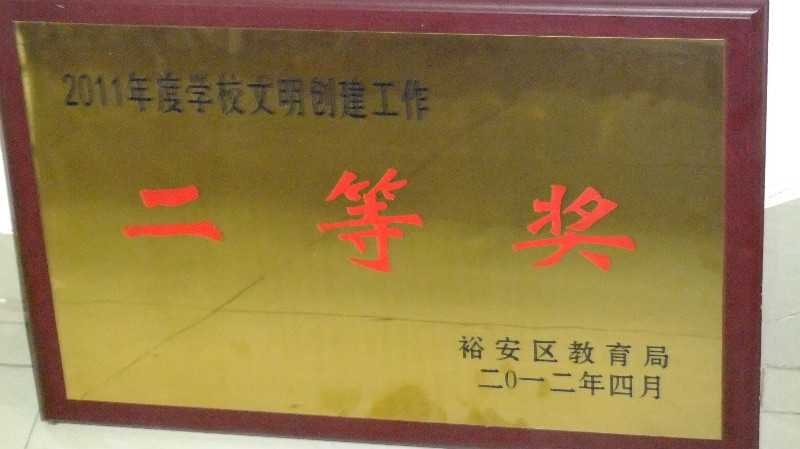 2011年度学校文明创建工作
二等奖
裕安区教育局
二0一二年四月